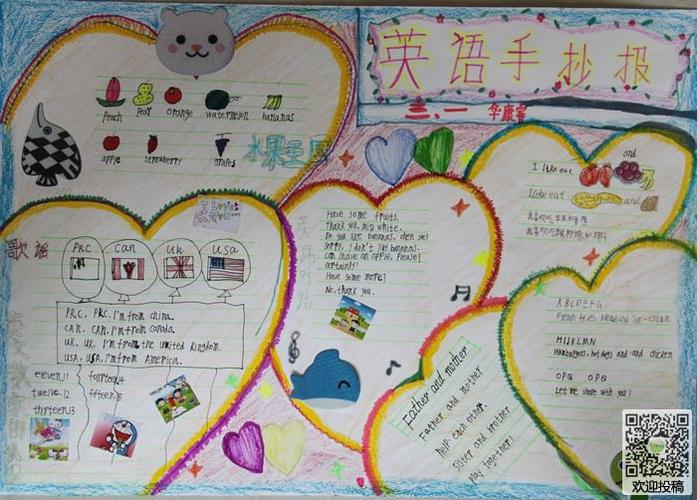 英语手抄报
三、一 华康睿
peach pear orange watermelon bananas
apple strawberry grapes
水果王国
歌谣
PRC Can Uk USA
PRC, PRC. I'm from china.
CAN. CAN. I'm from Canada.
UK. UK. I'm from the united kingdom.
USA, USA, I'm from America.
eleven 11 fourteen 14
twelve. 12 fifteen 15
thirteen 13
Have some fruits.
Thank you, Miss White.
Do you like bananas, chen jie?
Sorry, I don't like bananas.
Can I have an apple, please?
Certainly!
Have some more!
No, thank you.
Father and mother
Father and mother
help each other.
Sister and brother
play together!
I like eat and
I like eat and
A B C D E F G
French fries, bread and ice-cream
H I J K L M N
Hamburgers, hot dogs and and chicken
O P Q O P Q
Let me share with you!
欢迎投稿